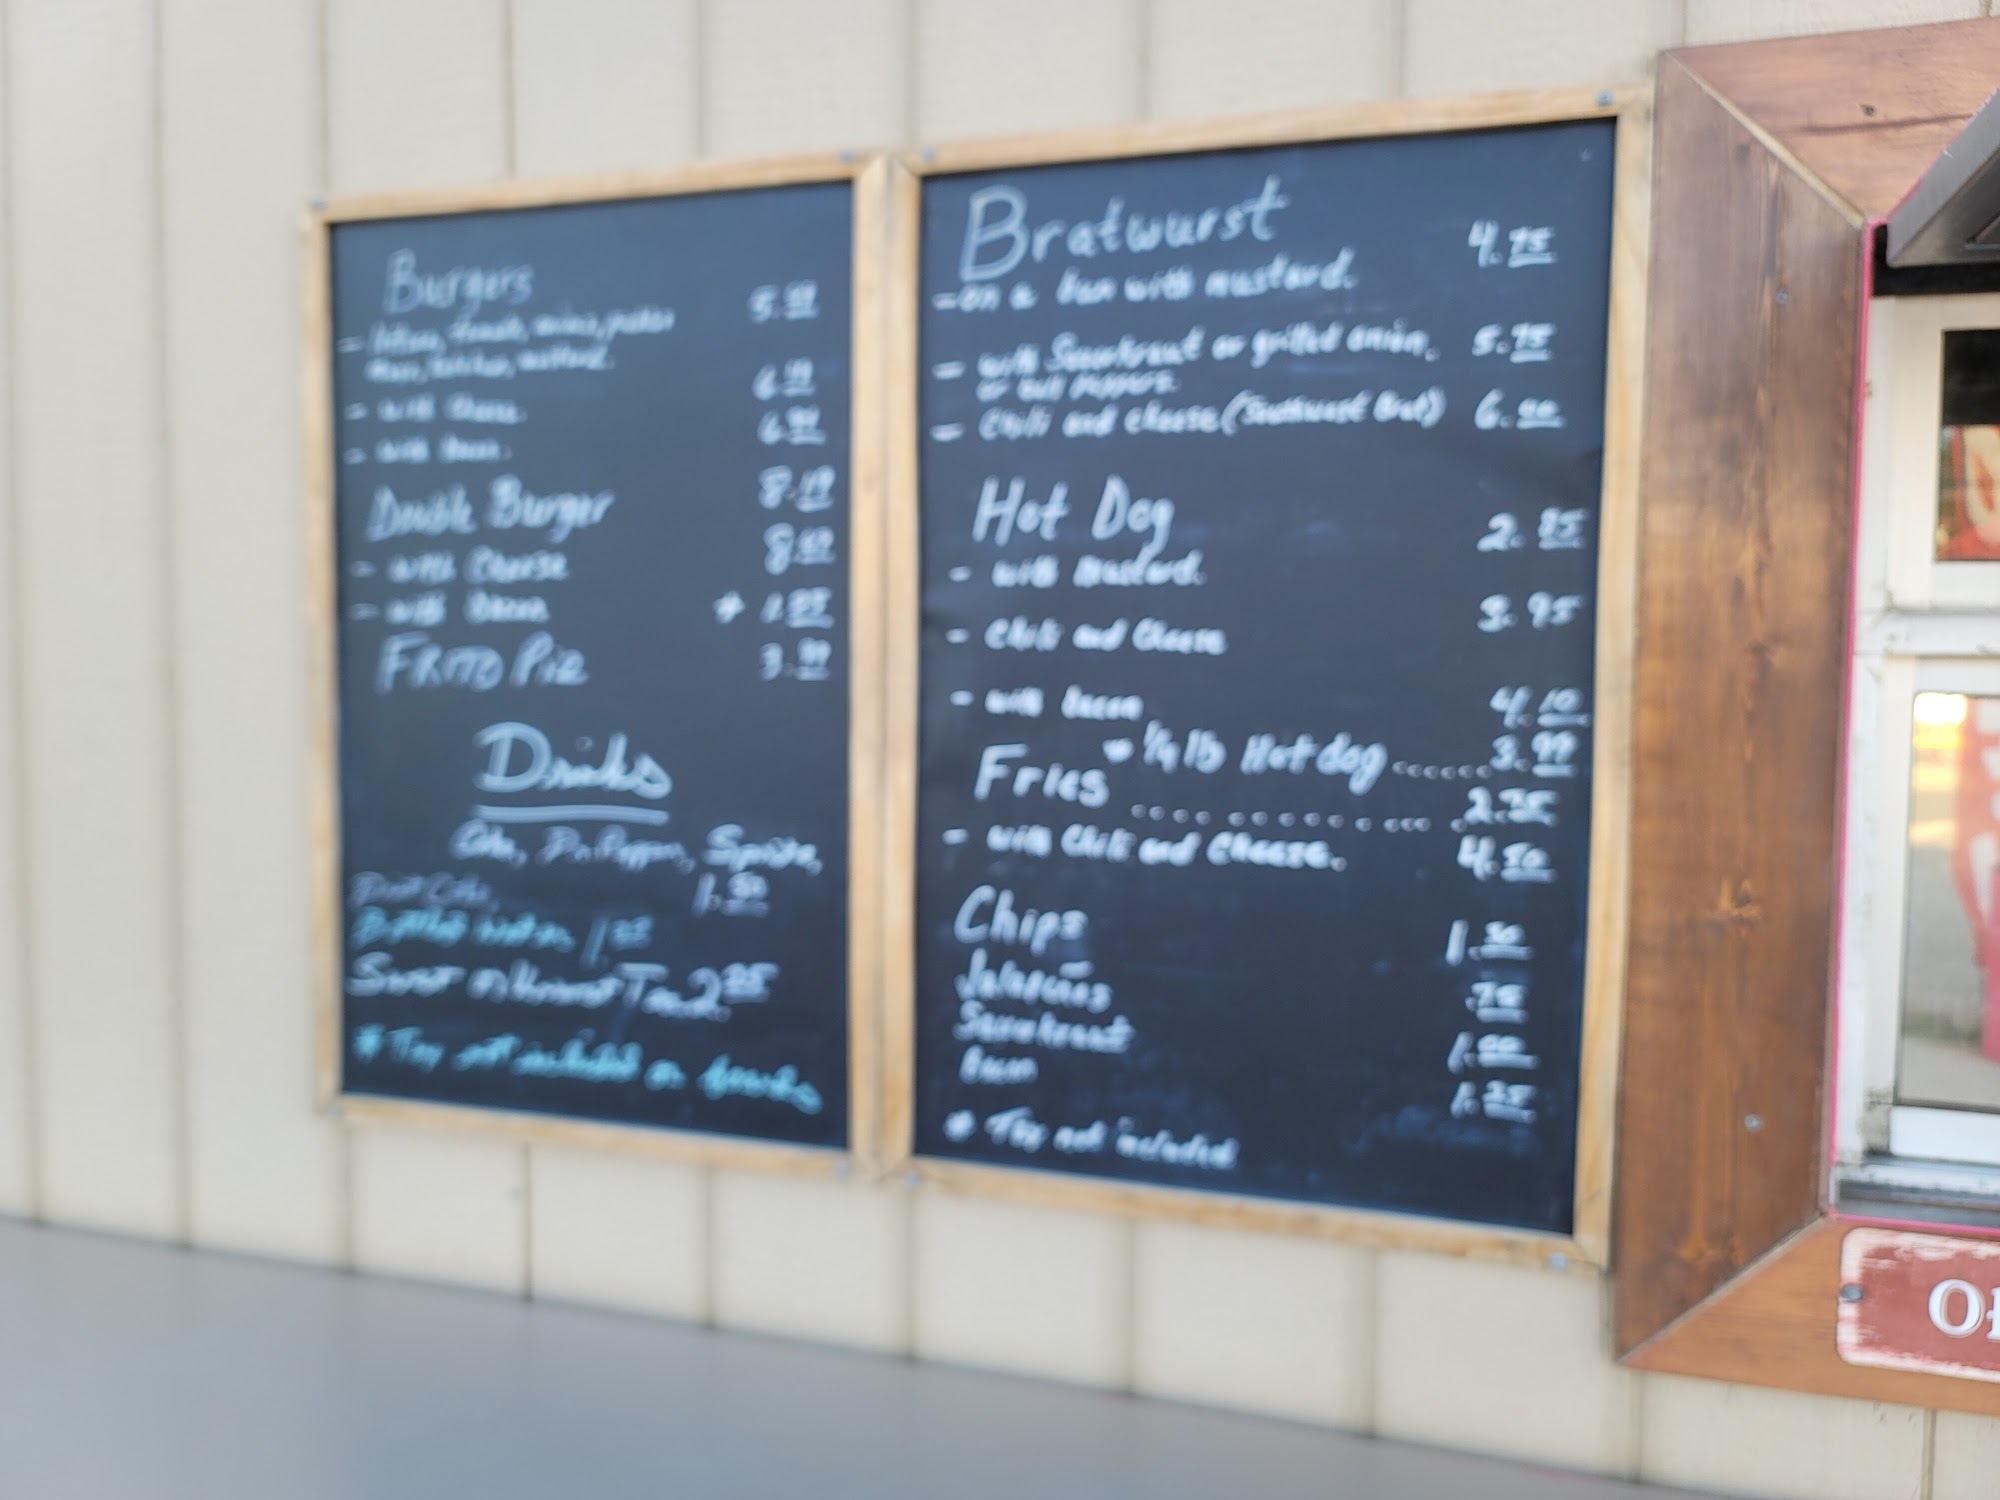 Burgers 5.49
- lettuce, tomato, onions, pickles
Mayo, ketchup, mustard.
- with Cheese.
- with Bacon.
Double Burger 8.19
- with Cheese 8.69
- with Bacon + 1.25
FRITO Pie 3.99
Drinks
Coke, Dr. Pepper, Sprite,
Diet Coke, 1.50
Bottled water
Sweet or Unsweet Tea 2.25
* Tax not included on drinks
Bratwurst 4.75
- on a bun with mustard.
- with Sauerkraut or grilled onion. 5.75
or bell peppers.
- Chili and cheese (Southwest Brat) 6.00
Hot Dog 2.85
- with Mustard.
- Chili and Cheese 3.95
- with Bacon 4.10
1/4 lb Hot dog ...... 3.99
Fries ............ 2.75
- with Chili and Cheese. 4.50
Chips 1.50
Jalapeños .75
Sauerkraut 1.00
Bacon 1.25
* Tax not included